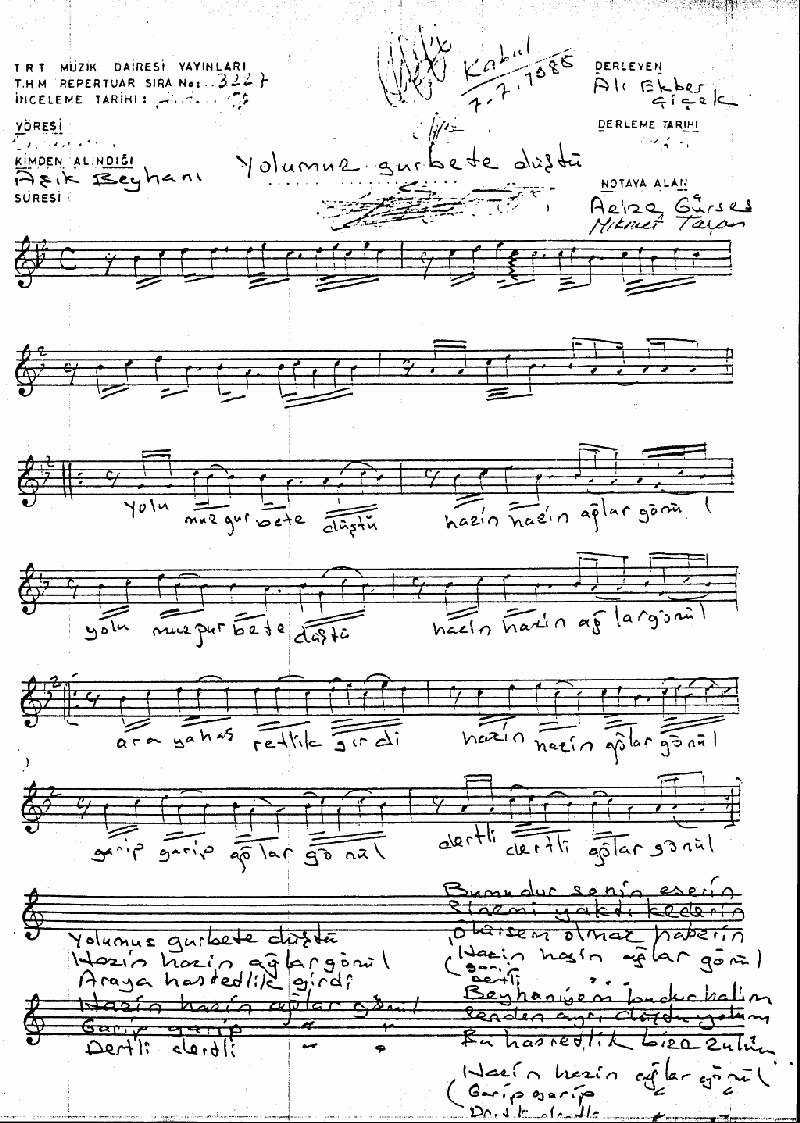 TRT MÜZİK DAİRESİ YAYINLARI
T.H.M REPERTUAR SIRA No: 3227
İNCELEME TARİHİ:
YÖRESİ
KİMDEN ALINDIĞI
Aşık Beyhani
SÜRESİ
Kabul
7.7.1986
Yolumuz gurbete düştü
DERLEYEN
Ali Ekber
Çiçek
DERLEME TARİHİ
NOTAYA ALAN
Gürses
Hikmet Taşan
yolu muz gur bete düştü hazin hazin ağlar gönül
yolu muz gur bete düştü hazin hazin ağ lar gönül
ara ya has retlik gir di hazin hazin ağlar gönül
garip garip ağ lar gö nül dertli dertli ağlar gönül
Yolumuz gurbete düştü
Hazin hazin ağlar gönül
Araya hasretlik girdi
Hazin hazin ağlar gönül
Garip garip " "
Dertli dertli " "
Bumudur senin eserin
Sinemi yaktı kederin
Ölürsem olmaz haberin
(Hazin hazin ağlar gönül
garip
Dertli " "
Beyhaniyem budur halim
Senden ayrı düştü yolum
Bu hasretlik bize zulüm
Hazin hazin ağlar gönül
(Garip garip " "
dertli